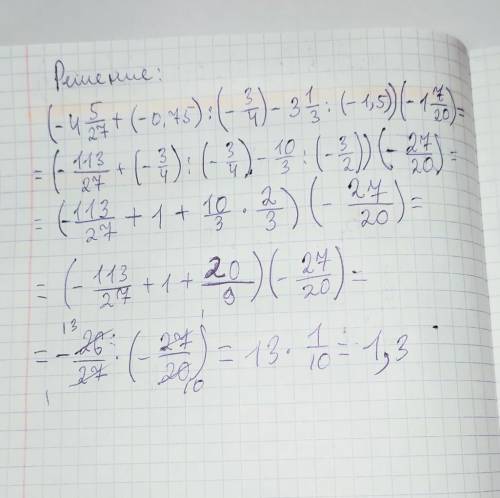 Решение:
(-4 5/27 + (-0,75) : (-3/4) - 3 1/3 : (-1,5)) (-1 7/20) =
= (-113/27 + (-3/4) : (-3/4) - 10/3 : (-3/2)) (-27/20) =
= (-113/27 + 1 + 10/3 · 2/3) (-27/20) =
= (-113/27 + 1 + 20/9) (-27/20) =
= -26/27 · (-27/20) = 13 · 1/10 = 1,3